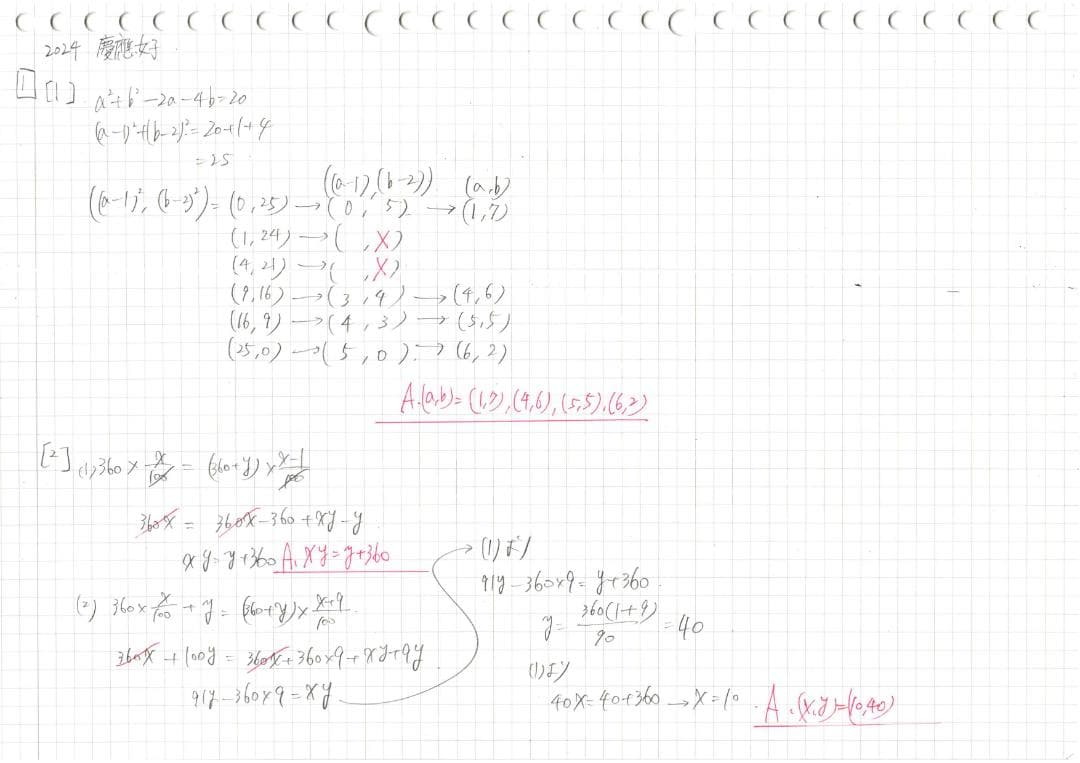 2024 慶應女子
1 [1] a²+b²-2a-4b=20
(a-1)²+(b-2)²=20+1+4
=25
((a-1),(b-2)) (a,b)
((a-1)²,(b-2)²)=(0,25)→(0,5)→(1,7)
(1,24)→( ,×)
(4,21)→( ,×)
(9,16)→(3,4)→(4,6)
(16,9)→(4,3)→(5,5)
(25,0)→(5,0)→(6,2)
A.(a,b)=(1,7),(4,6),(5,5),(6,2)
[2] (1) 360×x/100=(360+y)×x-1/100
360x=360x-360+xy-y
xy=y+360 A. xy=y+360
(2) 360×x/100+y=(360+y)×x+9/100
360x+100y=360x+360×9+xy+9y
91y-360×9=xy
→(1)より
91y-360×9=y+360
y=360(1+9)/90=40
(1)より
40x=40+360→x=10. A.(x,y)=(10,40)